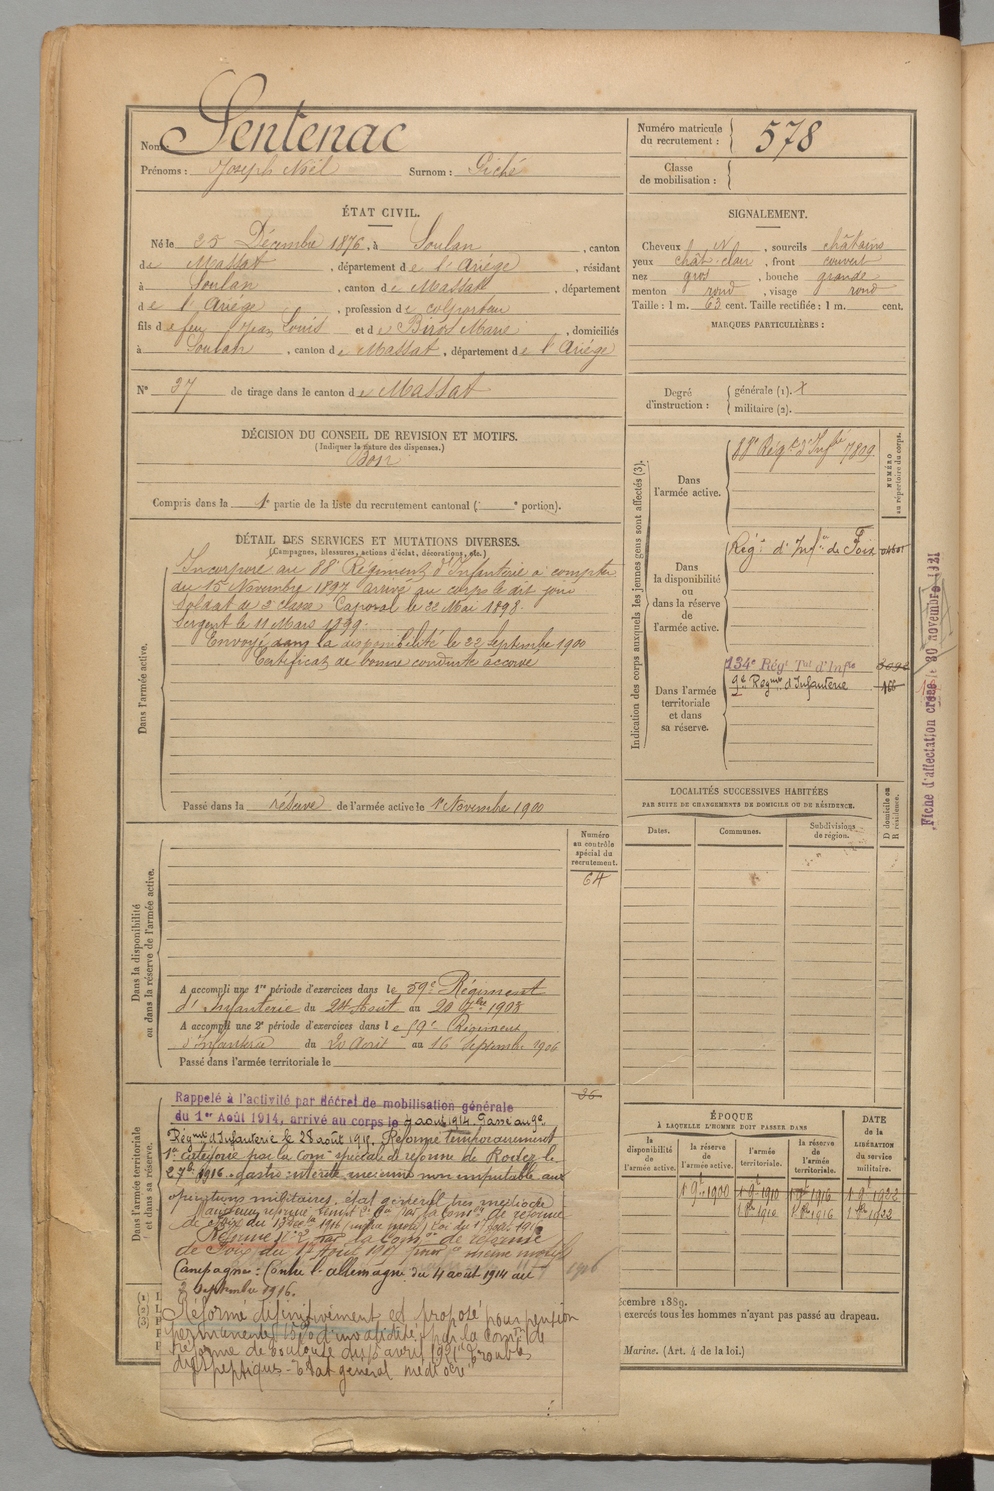 Nom : Sentenac
Prénoms : Joseph Noël Surnom : Giché
Numéro matricule du recrutement : 578
Classe de mobilisation :
ÉTAT CIVIL.
Né le 25 Décembre 1876, à Soulan, canton
de Massat, département de l'Ariège, résidant
à Soulan, canton de Massat, département
de l'Ariège, profession de colporteur
fils de feu Jean Louis et de Biros Marie, domiciliés
à Soulan, canton de Massat, département de l'Ariège
N° 37 de tirage dans le canton de Massat
SIGNALEMENT.
Cheveux N, sourcils châtains
yeux chât. clair, front couvert
nez gros, bouche grande
menton rond, visage rond
Taille : 1 m. 63 cent. Taille rectifiée : 1 m. cent.
MARQUES PARTICULIÈRES :
Degré d'instruction : générale (1). militaire (2).
DÉCISION DU CONSEIL DE REVISION ET MOTIFS.
(Indiquer la nature des dispenses.)
Bon
Compris dans la 1e partie de la liste du recrutement cantonal ( e portion).
DÉTAIL DES SERVICES ET MUTATIONS DIVERSES.
(Campagnes, blessures, actions d'éclat, décorations, etc.)
Dans l'armée active.
Incorporé au 88e Régiment d'Infanterie à compter
du 15 Novembre 1897 arrivé au corps le dit jour
Soldat de 2e classe Caporal le 22 Mai 1898.
Sergent le 11 Mars 1899.
Envoyé dans la disponibilité le 22 Septembre 1900
Certificat de bonne conduite accordé
Passé dans la réserve de l'armée active le 1er Novembre 1900
Indication des corps auxquels les jeunes gens sont affectés (3).
NUMÉRO au répertoire du corps.
Dans l'armée active.
88e Régt d'Infie 7809
Dans la disponibilité ou dans la réserve de l'armée active.
Régt d'Infie de Foix
Dans l'armée territoriale et dans sa réserve.
134e Régt Tal d'Infie
9e Regmt d'Infanterie 166
Fiche d'affectation créée le 30 novembre 1921
LOCALITÉS SUCCESSIVES HABITÉES
PAR SUITE DE CHANGEMENTS DE DOMICILE OU DE RÉSIDENCE.
Dates. Communes. Subdivisions de région.
D domicile ou R résidence.
Dans la disponibilité ou dans la réserve de l'armée active.
Numéro au contrôle spécial du recrutement.
64
A accompli une 1re période d'exercices dans le 59e Régiment
d'Infanterie du 24 Août au 20 7bre 1903
A accompli une 2e période d'exercices dans le 59e Régiment
d'Infanterie du 20 Août au 16 Septembre 1906
Passé dans l'armée territoriale le
Dans l'armée territoriale et dans sa réserve.
Rappelé à l'activité par décret de mobilisation générale
du 1er Août 1914, arrivé au corps le 4 août 1914. Passé au 9e
Régmt d'Infanterie le 28 août 1915. Réformé temporairement
1re catégorie par la Comon spéciale de réforme de Rodez le
2 7bre 1916. gastro entérite ancienne non imputable aux
opérations militaires, état général très médiocre
de Foix du 13 1916 (même motif) Loi du
Réformé N° 2 par la Comon de réforme
de Foix du 1917 pour même motif
Campagne : Contre l'allemagne du 4 août 1914 au
2 septembre 1916.
Réformé définitivement et proposé pour pension
permanente 15% d'invalidité par la Comon de
réforme de Toulouse du avril 1921 "Troubles
dyspeptiques - Etat général médiocre"
ÉPOQUE
À LAQUELLE L'HOMME DOIT PASSER DANS
DATE de la LIBÉRATION du service militaire.
la disponibilité de l'armée active. la réserve de l'armée active. l'armée territoriale. la réserve de l'armée territoriale.
1 9bre 1900 1 9bre 1910 1 9bre 1916 1 9bre 1922
1 8bre 1910 1 8bre 1916 1 8bre 1922
décembre 1889.
exercés tous les hommes n'ayant pas passé au drapeau.
Marine. (Art. 4 de la loi.)